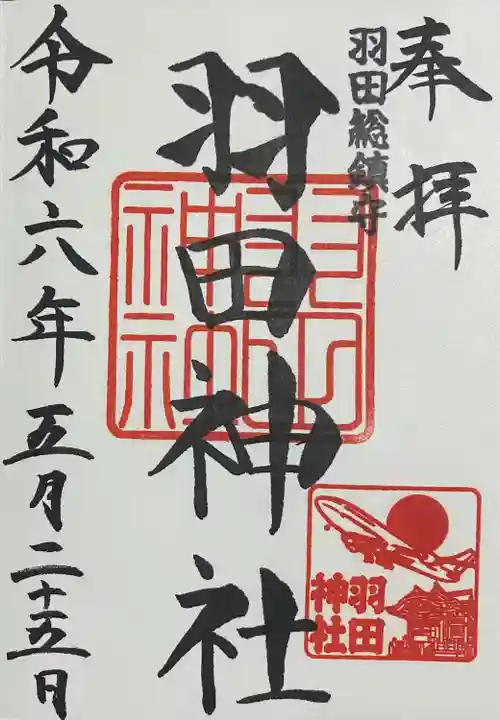 奉拝
羽田総鎮守
羽田神社
羽田
神社
令和六年五月二十五日